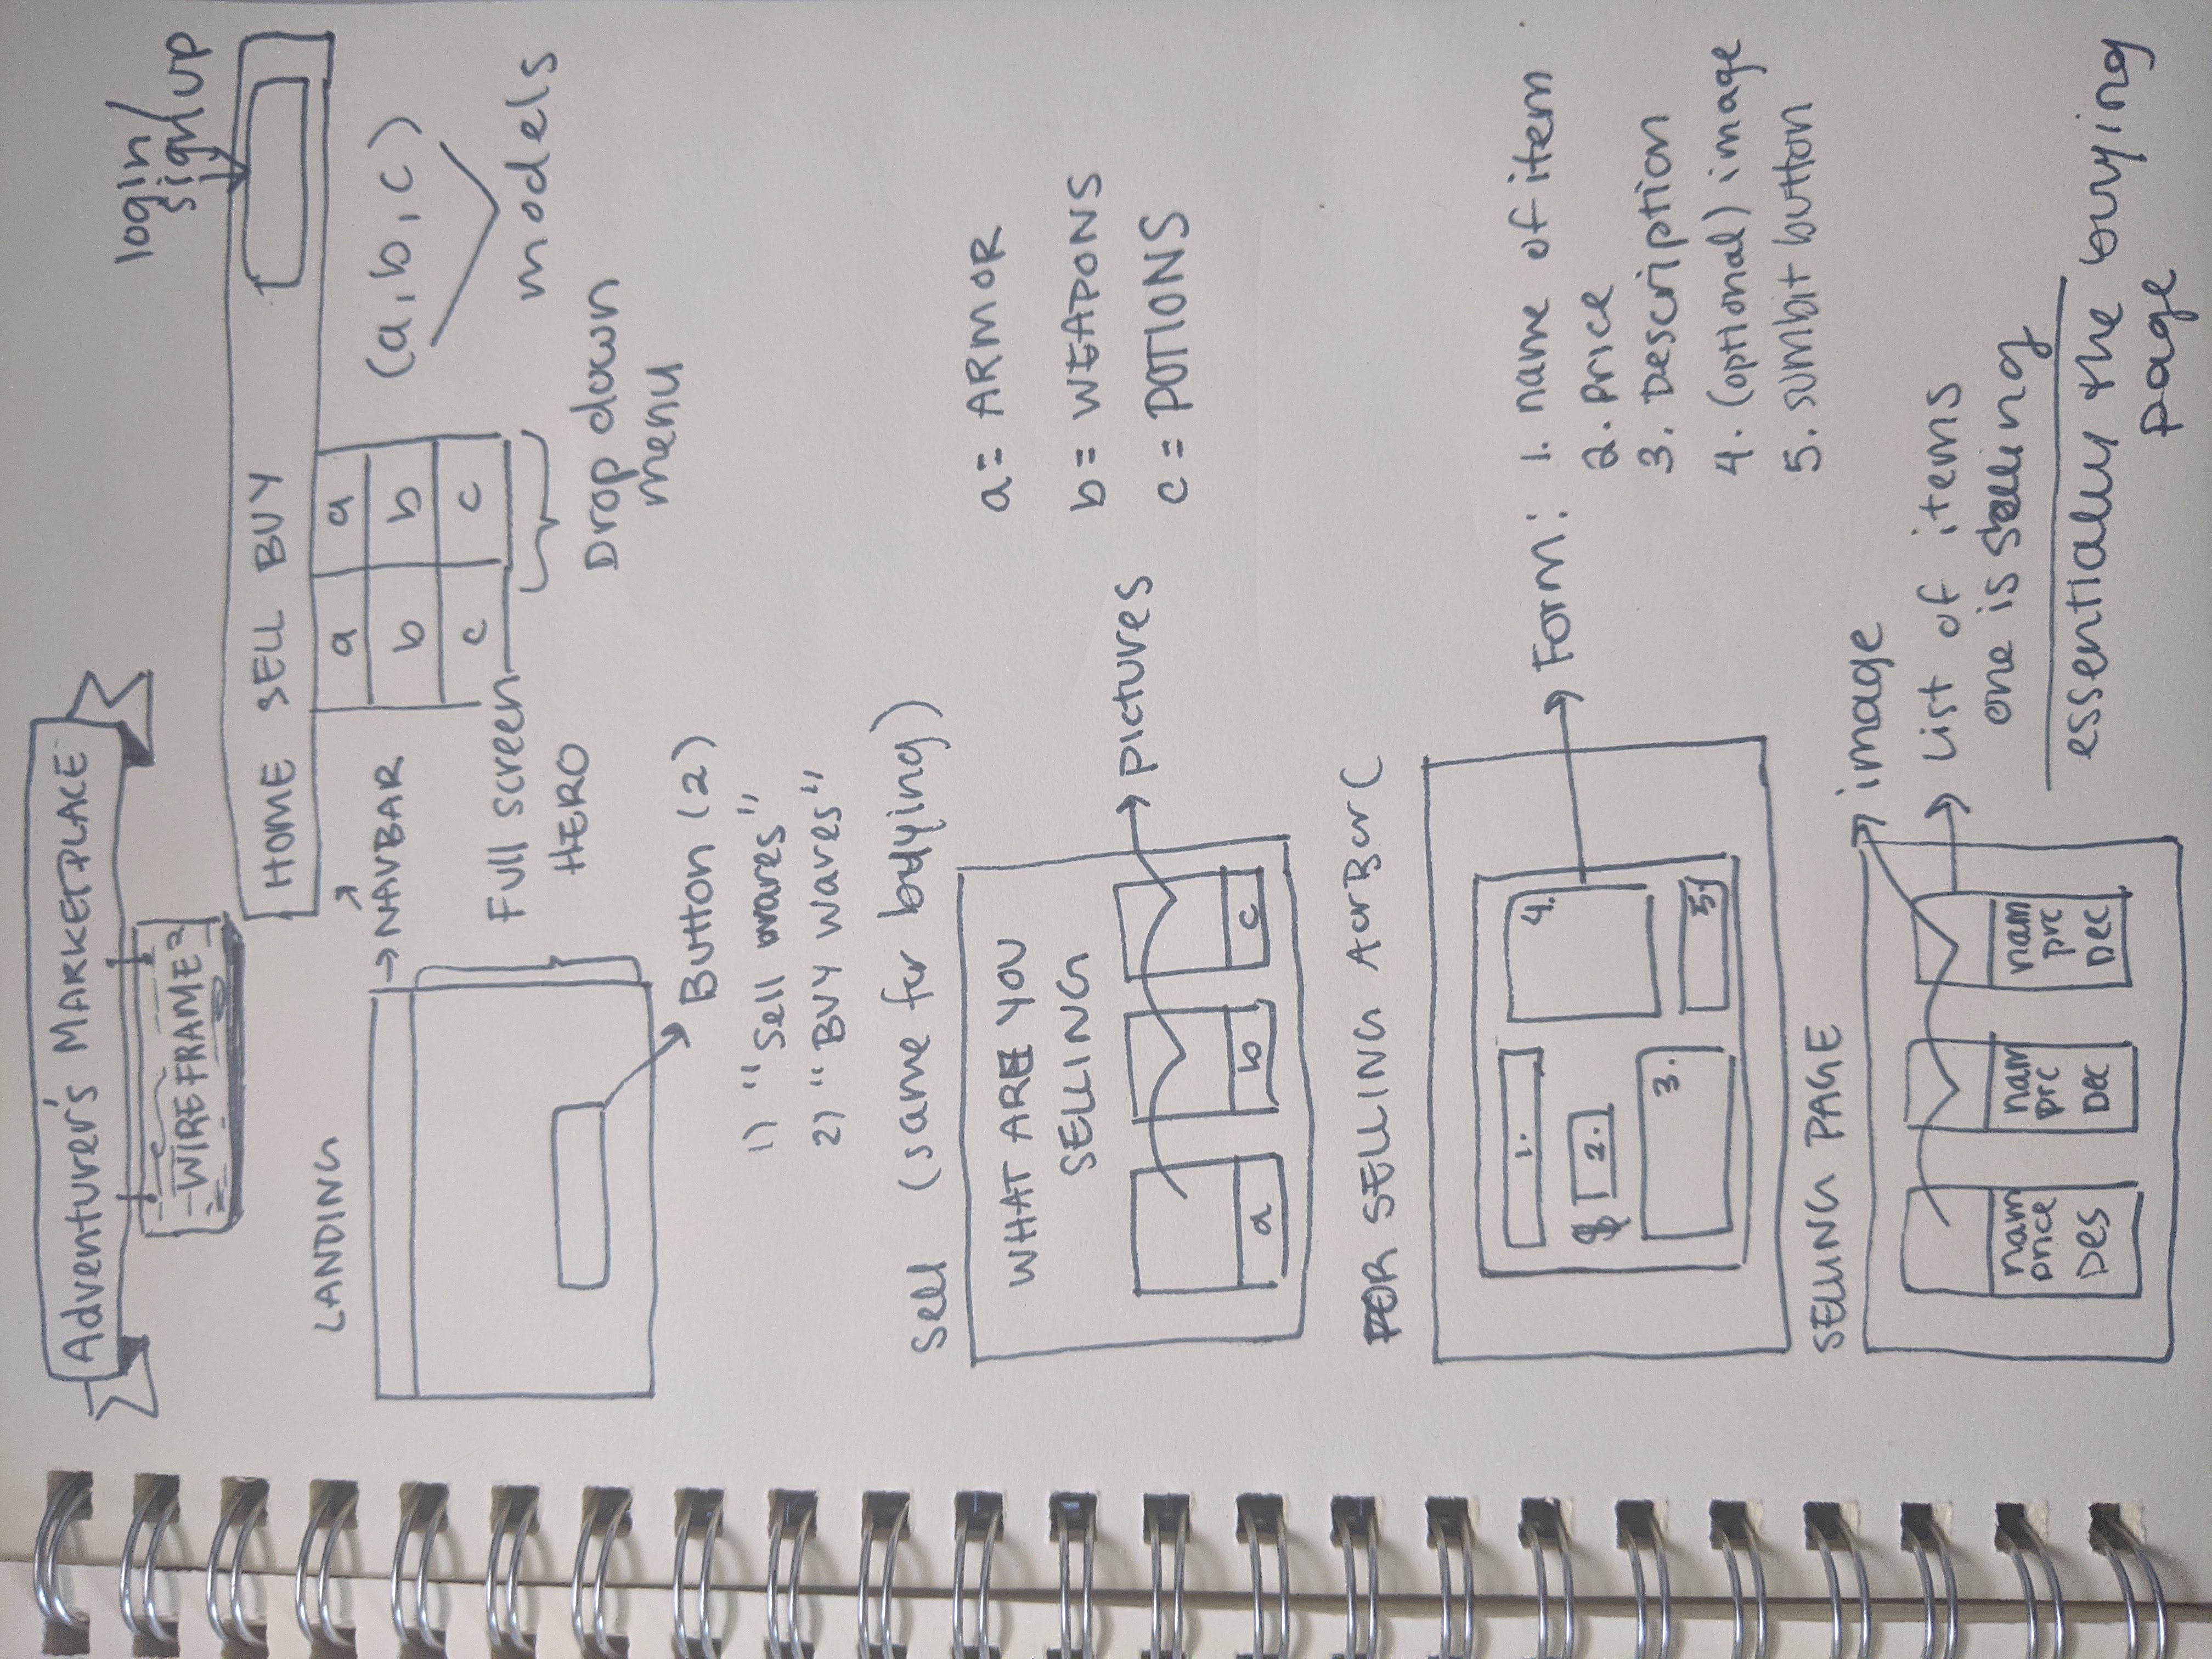 Adventurer's MARKETPLACE
WIREFRAME
login/
sign/up
HOME SELL BUY
a a
b b
c c
(a, b, c)
models
Drop down
menu
LANDING
→ NAVBAR
Full screen
HERO
Button (2)
1) "Sell wares"
2) "BUY wares"
Sell (same for bdying)
WHAT ARE YOU
SELLING
a b c
pictures
a = ARMOR
b = WEAPONS
c = POTIONS
FOR SELLING AorBorC
1.
$ 2.
3.
4.
5.
Form: 1. name of item
2. price
3. Description
4. (optional) image
5. sumbit button
SELLING PAGE
nam
price
Des
nam
prc
Dec
nam
prc
Dec
image
List of items
one is selling
essentially the buying
page